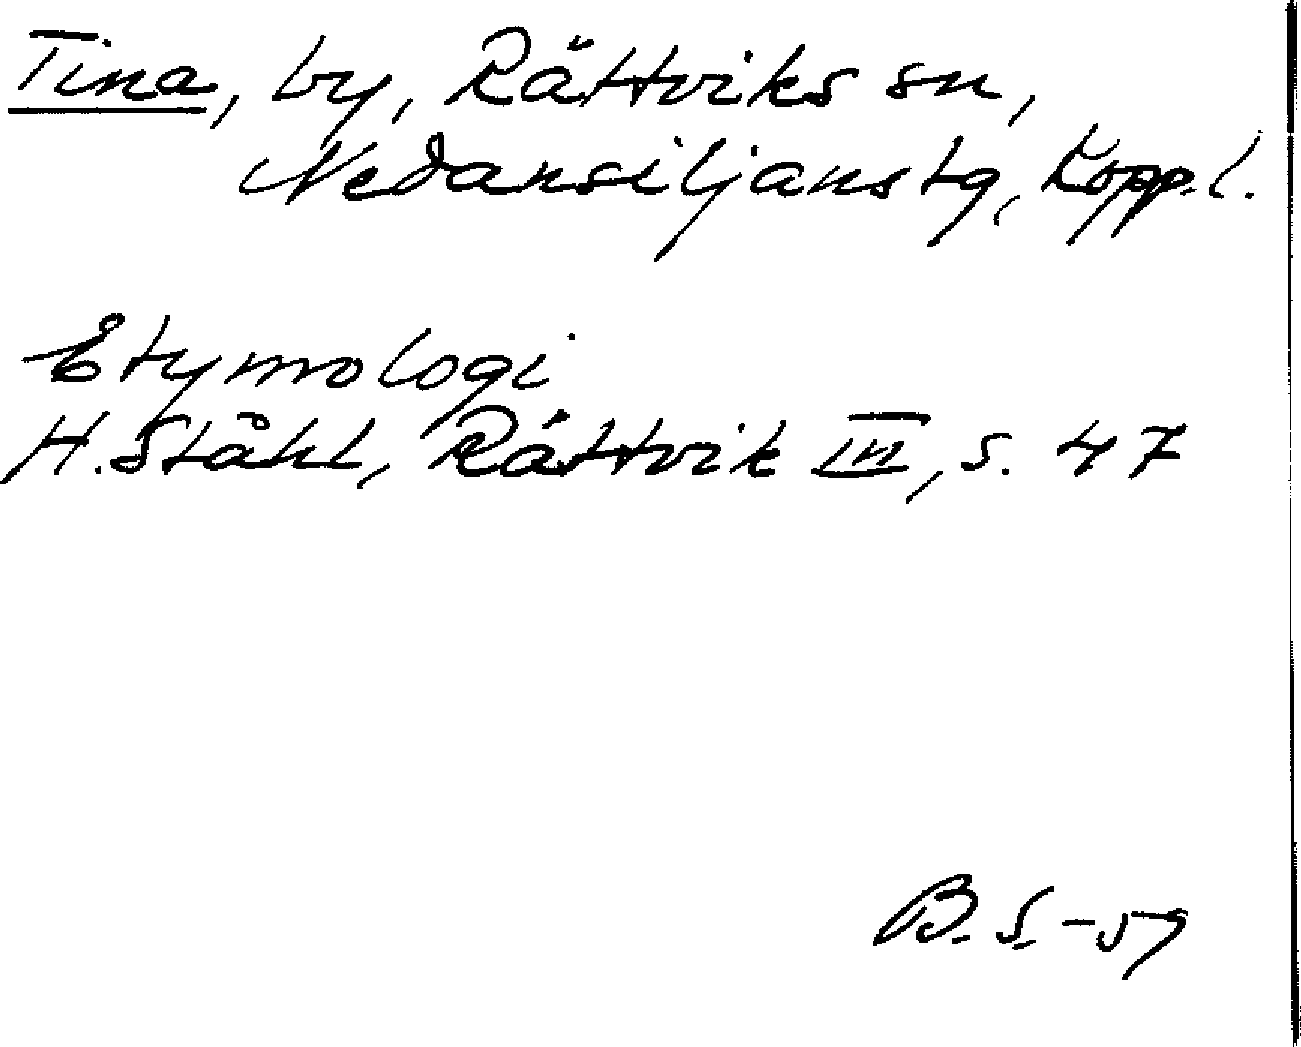 Tina, by, Rättviks sn,
Nedansiljans tg, Kopp. l.
Etymologi
H. Ståhl, Rättvik III, s. 47
B. S. -59